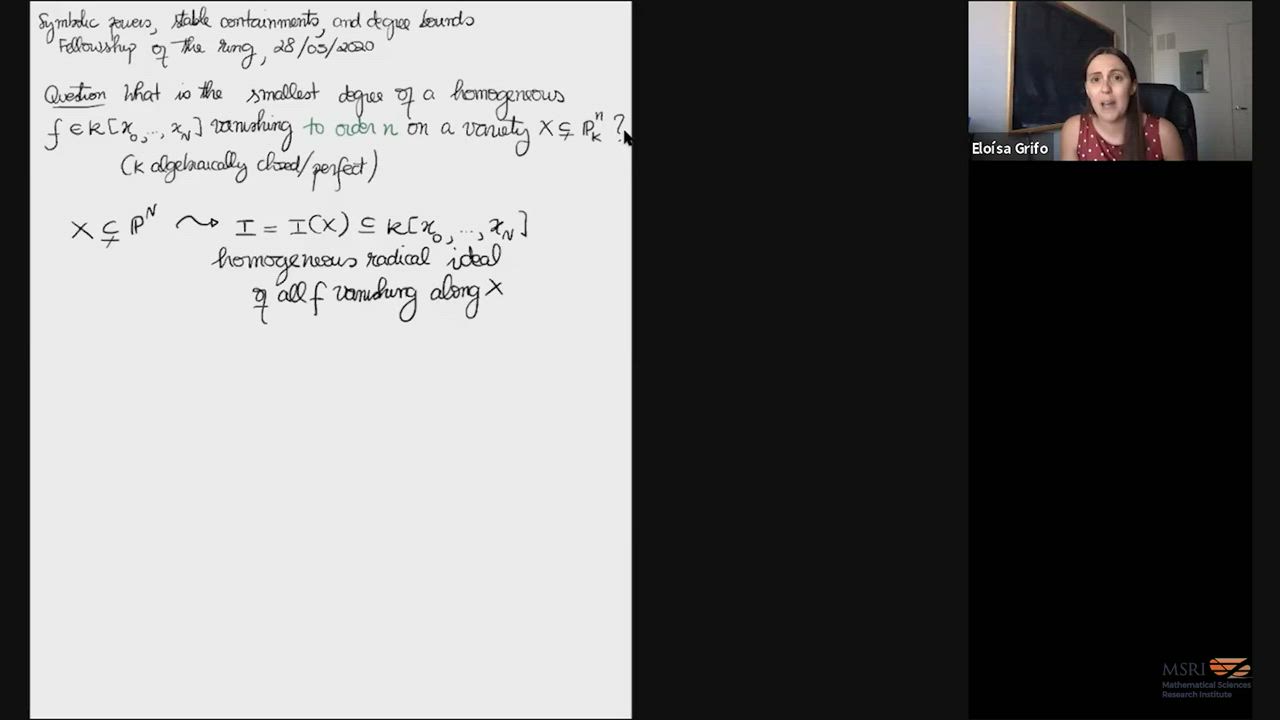 Symbolic powers, stable containments, and degree bounds
Fellowship of the ring, 28/05/2020
Question What is the smallest degree of a homogeneous
f ∈ k[x_0, ..., x_N] vanishing to order n on a variety X ⊊ ℙ_k^n ?
(k algebraically closed/perfect)
X ⊊ ℙ^N ⇝ I = I(X) ⊆ k[x_0, ..., x_N]
homogeneous radical ideal
of all f vanishing along X
Eloísa Grifo
MSRI
Mathematical Sciences
Research Institute